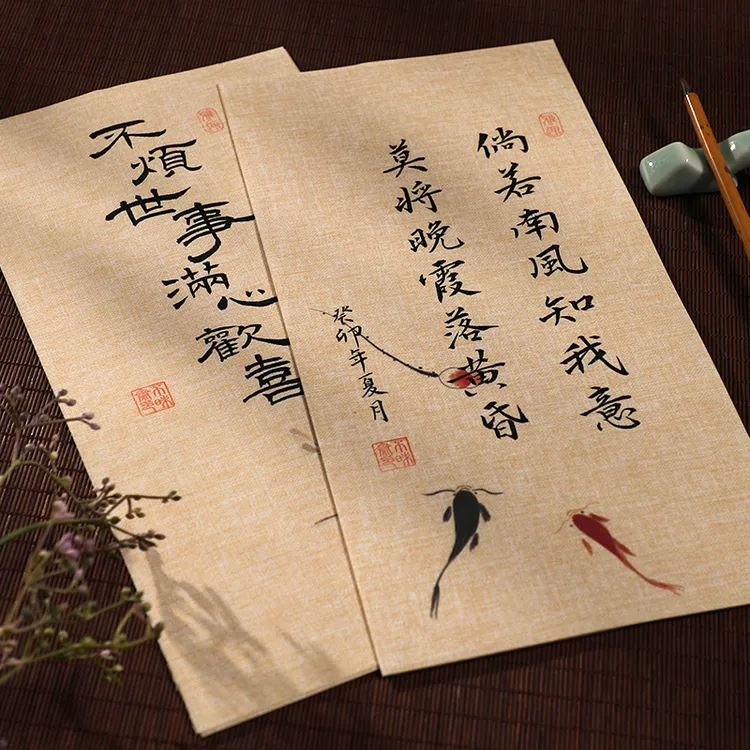 倘若南風知我意
莫將晚霞落黄昏
癸卯年夏月
不煩世事
滿心歡喜